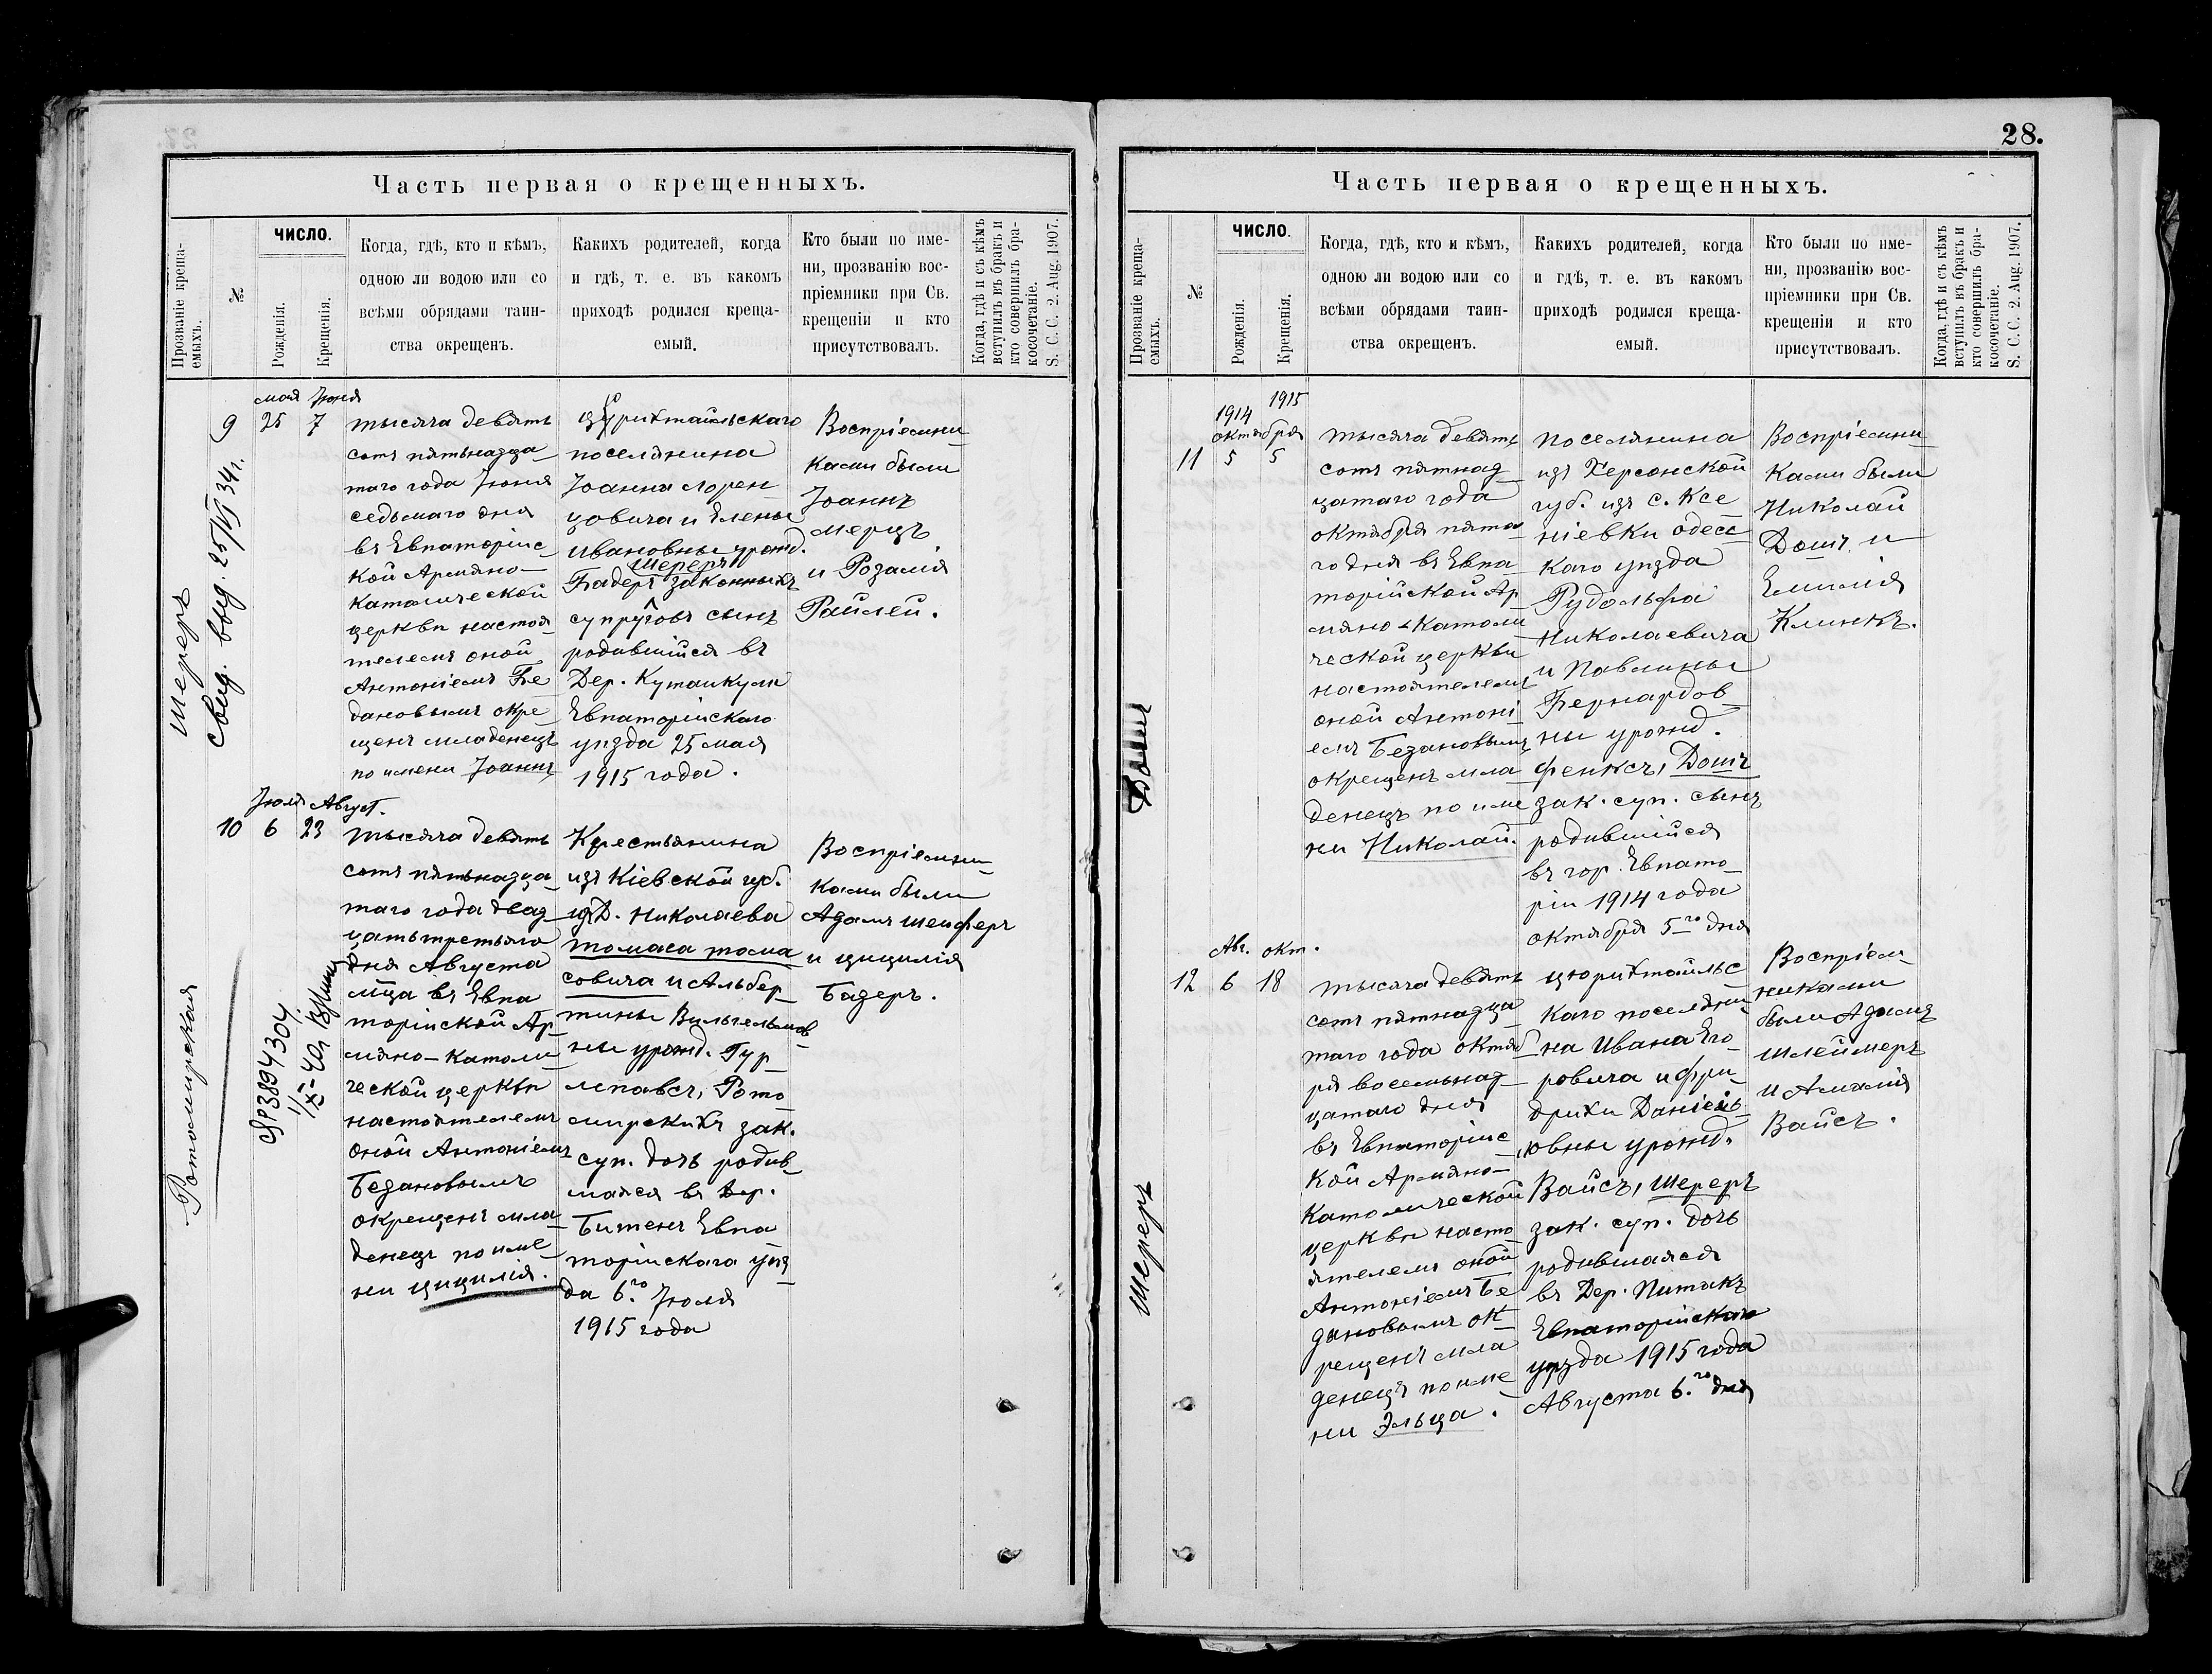 Часть первая о крещенныхъ.
Прозваніе креща-
емыхъ.
№
ЧИСЛО.
Рожденія.
Крещенія.
Когда, гдѣ, кто и кѣмъ,
одною ли водою или со
всѣми обрядами таин-
ства окрещенъ.
Какихъ родителей, когда
и гдѣ, т. е. въ какомъ
приходѣ родился креща-
емый.
Кто были по име-
ни, прозванію вос-
пріемники при Св.
крещеніи и кто
присутствовалъ.
Когда, гдѣ и съ кѣмъ
вступилъ въ бракъ и
кто совершилъ бра-
косочетаніе.
S. C. C. 2. Aug. 1907.
Шереръ
Свид. выд. 25/VI 34 г.
мая Іюня
9 25 7
тысяча девять
сотъ пятьнадца
таго года Іюня
седьмаго дня
въ Евпаторійс
кой Армяно-
католической
церкви настоя
телемъ оной
Антоніемъ Бе
дановымъ окре
щенъ младенецъ
по имени Іоаннъ
цюрихтальскаго
поселянина
Іоанна Лорен
цовича и Елены
Ивановны урожд.
Шереръ
Бадеръ законныхъ
супруговъ сынъ
родившійся въ
Дер. Кутайкули
Евпаторійскаго
уѣзда 25 мая
1915 года.
Воспріемни
ками были
Іоаннъ
Мерцъ
и Розалія
Райлей.
Ротомирская
93894304
1/X-40г.
Іюля Август.
10 6 23
тысяча девять
сотъ пятьнадца
таго года двад
цать третьяго
дня Августа
мца въ Евпа
торійской Ар
мяно-католи
ческой церкви
настоятелемъ
оной Антоніемъ
Бедановымъ
окрещенъ мла
денецъ по име
ни Цицилія.
Крестьянина
изъ Кіевской губ.
изъ Д. Николаева
Томаса Тома
совича и Альбер
тины Вильгельмов
ны урожд. Гур
лепавсъ, Рото
мирскихъ зак.
суп. дочь родив
шаяся въ Дер.
Битенъ Евпа
торійскаго уѣз
да 6.го Іюля
1915 года
Воспріемни
ками были
Адамъ Шенферъ
и Цицилія
Бадеръ.
28.
Часть первая о крещенныхъ.
Прозваніе креща-
емыхъ.
№
ЧИСЛО.
Рожденія.
Крещенія.
Когда, гдѣ, кто и кѣмъ,
одною ли водою или со
всѣми обрядами таин-
ства окрещенъ.
Какихъ родителей, когда
и гдѣ, т. е. въ какомъ
приходѣ родился креща-
емый.
Кто были по име-
ни, прозванію вос-
пріемники при Св.
крещеніи и кто
присутствовалъ.
Когда, гдѣ и съ кѣмъ
вступилъ въ бракъ и
кто совершилъ бра-
косочетаніе.
S. C. C. 2. Aug. 1907.
Дошъ
1914 1915
октября
11 5 5
тысяча девять
сотъ пятнад
цатаго года
октября пята
го дня въ Евпа
торійской Ар
мяно-католи
ческой церкви
настоятелемъ
оной Антоні
емъ Бедановымъ
окрещенъ мла
денецъ по име
ни Николай.
поселянина
изъ Херсонской
губ. изъ с. Ксе
ніевки одесс
каго уѣзда
Рудольфа
Николаевича
и Павлины
Бернардов
ны урожд.
Фенксъ, Дошъ
зак. суп. сынъ
родившійся
въ гор. Евпато
ріи 1914 года
октября 5го дня
Воспріемни
ками были
Николай
Дошъ и
Емилія
Клинкъ.
Шереръ
Авг. окт.
12 6 18
тысяча девять
сотъ пятнадца
таго года октяб
ря восемьнад
цатаго дня
въ Евпаторійс
кой Армяно-
католической
церкви насто
ятелемъ оной
Антоніемъ Бе
дановымъ ок
рещенъ мла
денецъ по име
ни Эльца.
цюрихтальс
каго поселяни
на Ивана Его
ровича и Фри
дрихи Даніель
овны урожд.
Вайсъ, Шереръ
зак. суп. дочь
родившаяся
въ Дер. Питакъ
Евпаторійскаго
уѣзда 1915 года
Августа 6.го дня
Воспріем
никами
были Адамъ
Шлеймеръ
и Амалія
Вайсъ.